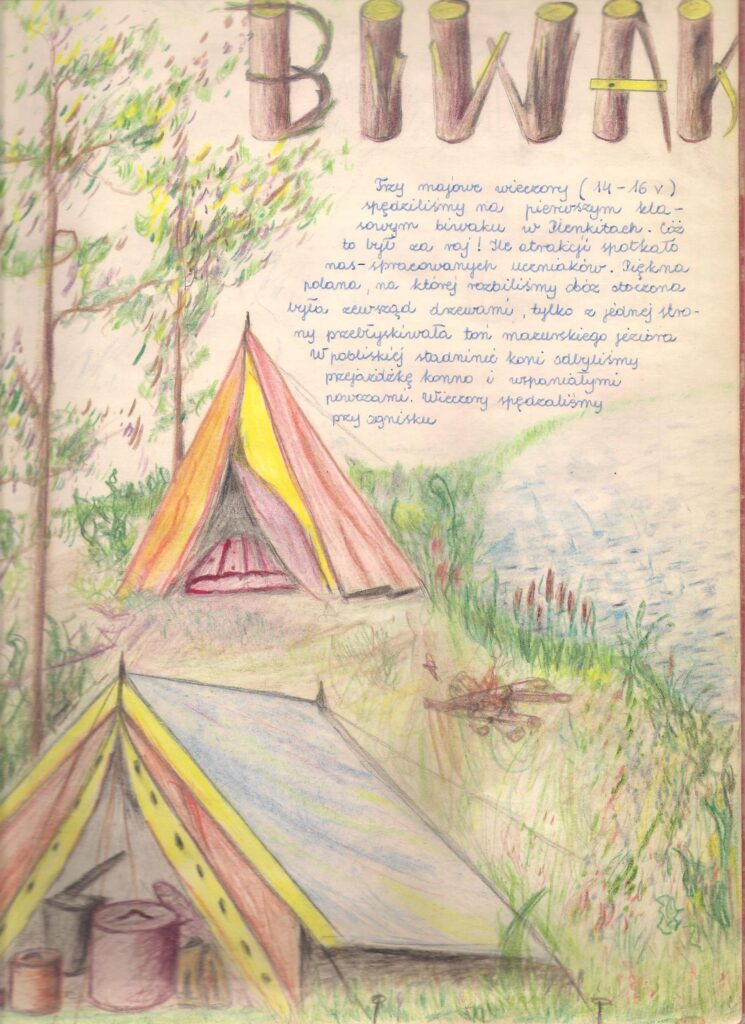 BIWAK
Trzy majowe wieczory (14-16 V)
spędziliśmy na pierwszym kla-
sowym biwaku w Plenkitach. Cóż
to był za raj! Ile atrakcji spotkało
nas-spracowanych uczniaków. Piękna
polana, na której rozbiliśmy obóz otoczona
była zewsząd drzewami, tylko z jednej stro-
ny przebłyskiwała toń mazurskiego jeziora
W pobliskiej stadninie koni odbyliśmy
przejażdżkę konno i wspaniałymi
powozami. Wieczory spędzaliśmy
przy ognisku